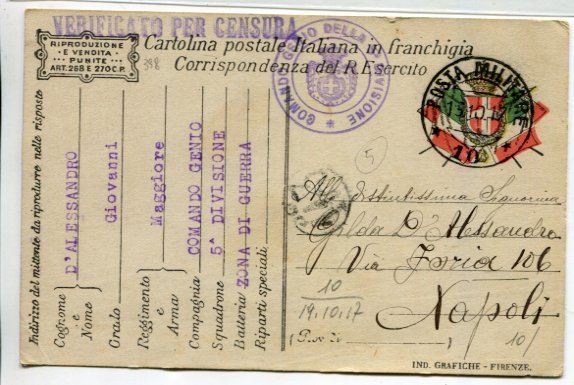 VERIFICATO PER CENSURA
RIPRODUZIONE
E VENDITA
PUNITE
ART. 268 E 270 C.P.
Cartolina postale Italiana in franchigia
398
Corrispondenza del R. Esercito
COMANDO GENIO DELLA DIVISIONE
POSTA MILITARE
10
5
Indirizzo del mittente da riprodurre nelle risposte
Cognome e Nome
D'ALESSANDRO
Giovanni
Grado
Maggiore
Reggimento e Arma
COMANDO GENIO
Compagnia
Squadrone
Batteria
5ª DIVISIONE
Riparti speciali
ZONA DI GUERRA
Alla distintissima Signorina
Gilda D'Alessandro
Via Foria 106
Napoli
10
19.10.17
10/
IND. GRAFICHE - FIRENZE.